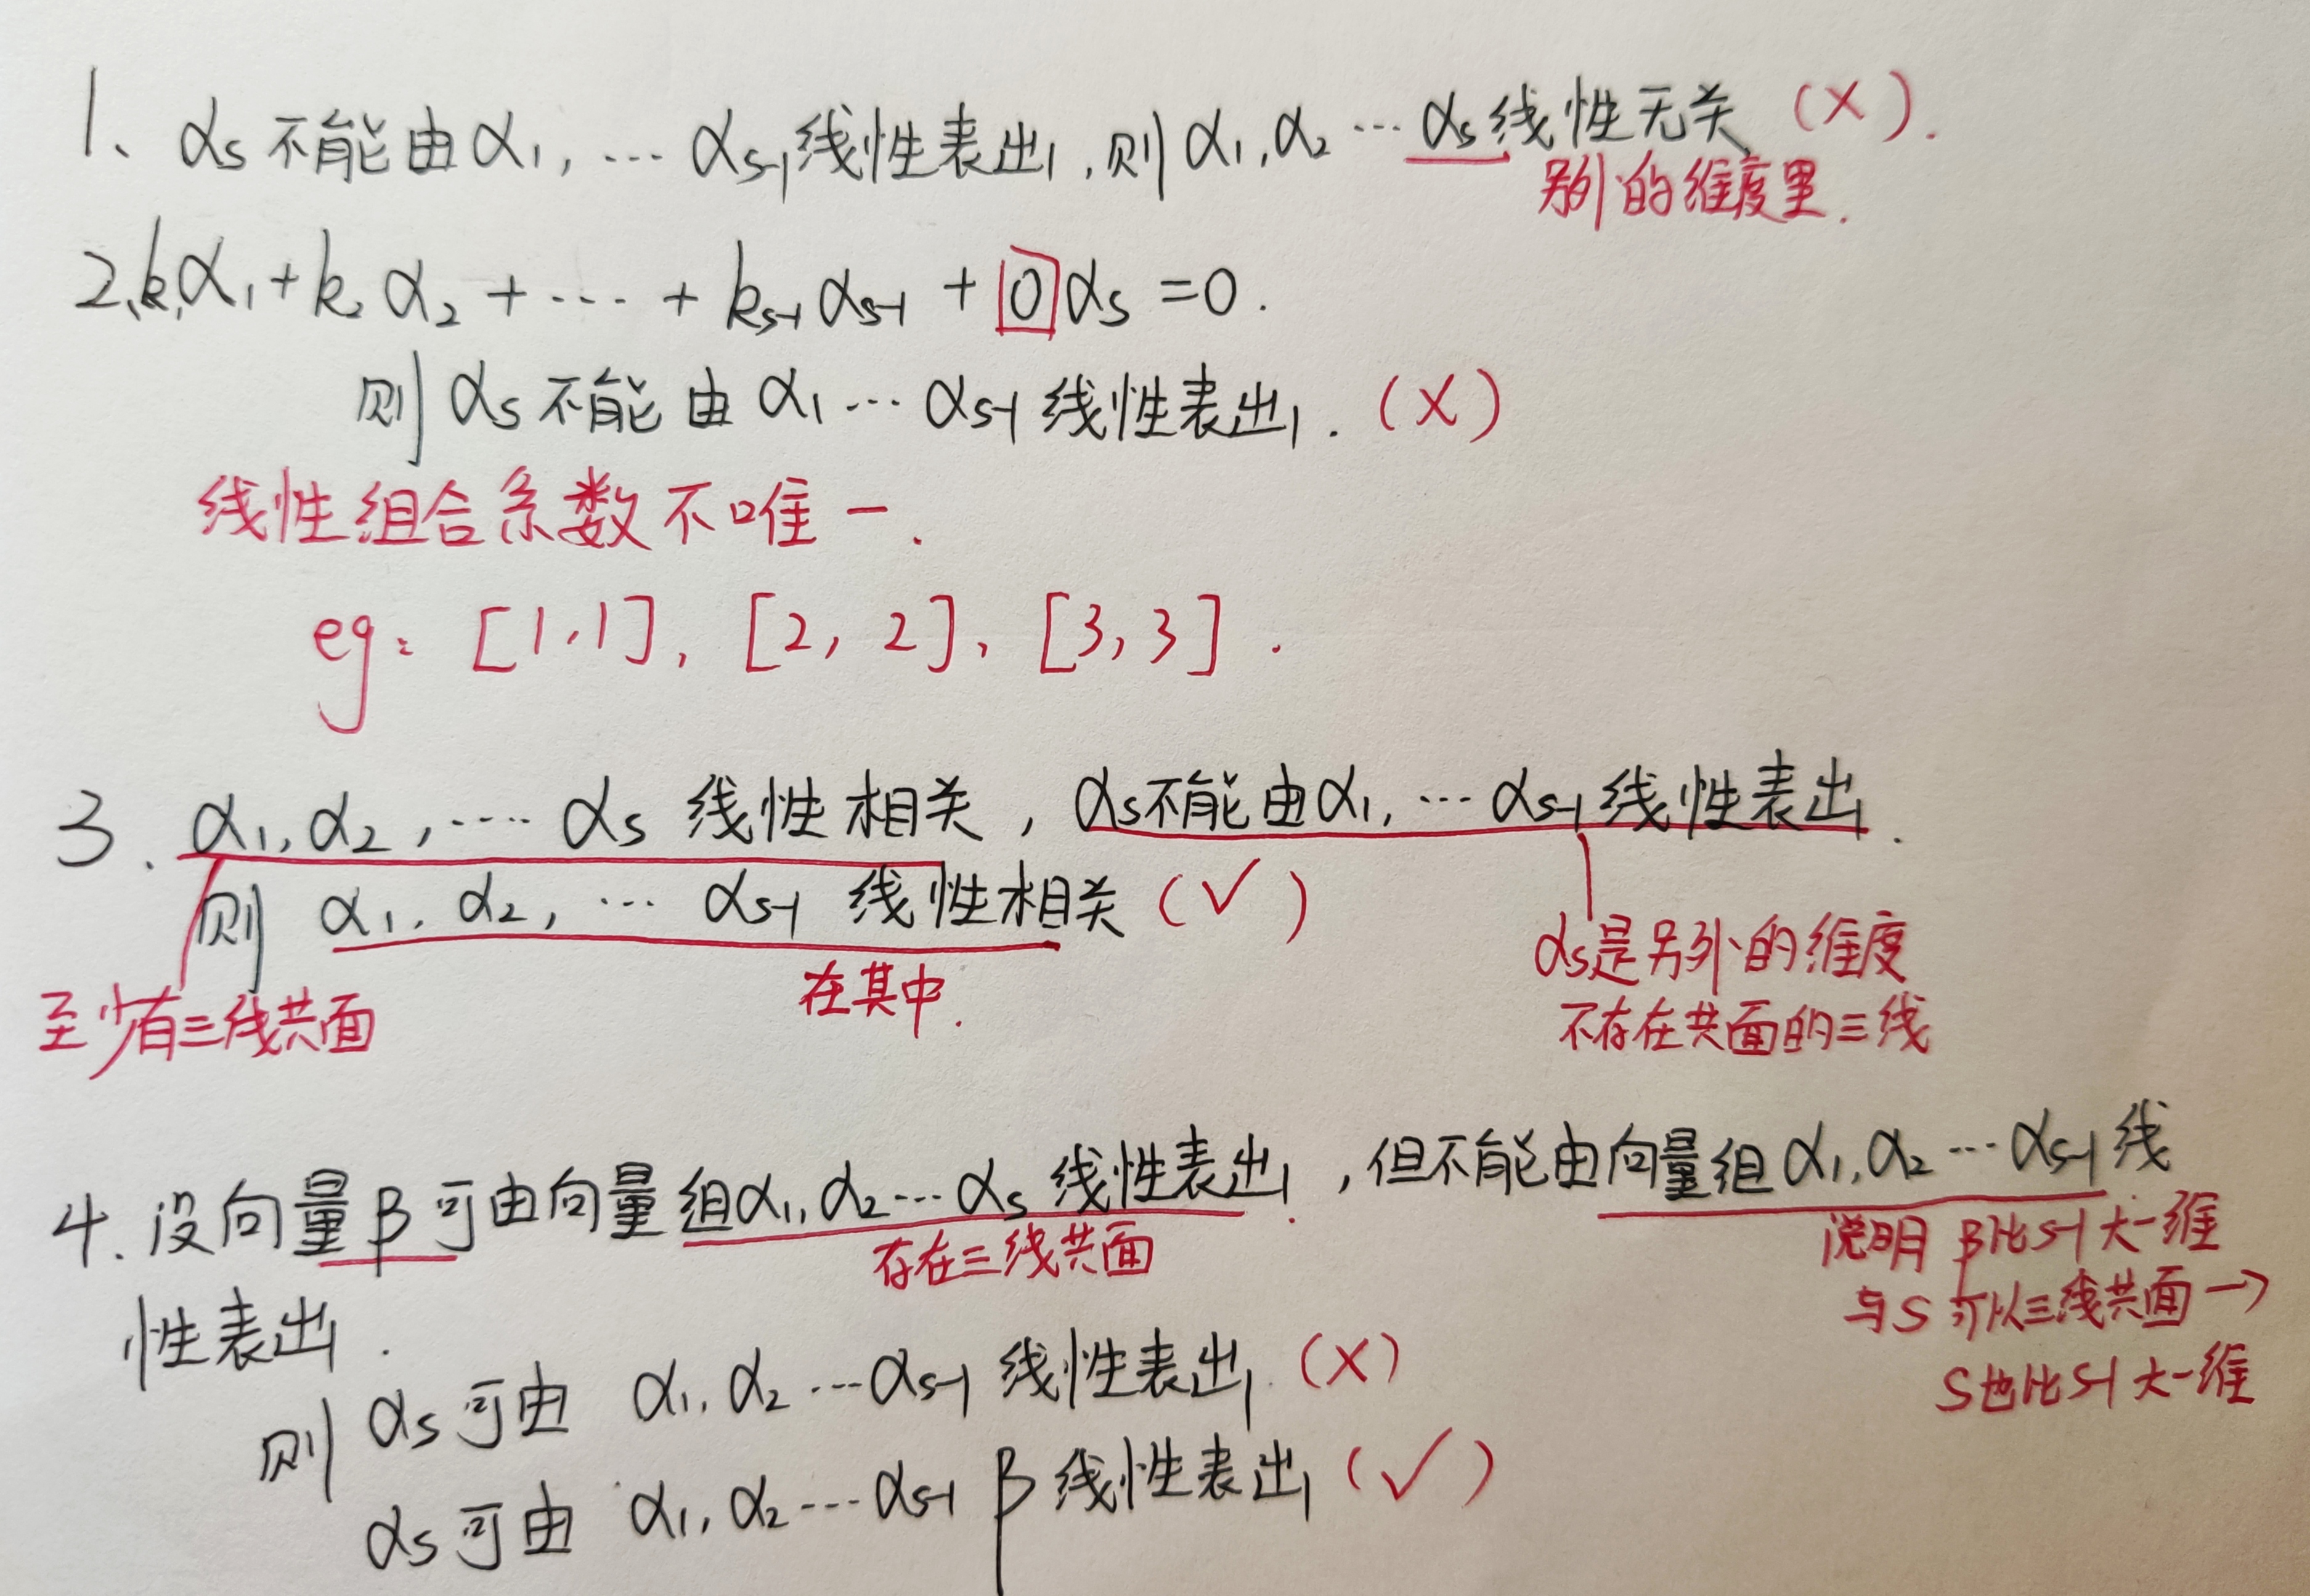 1、αs不能由α1,…αs-1线性表出,则α1,α2…αs线性无关(×).
另外的维度里.
2、k1α1+k2α2+…+ks-1αs-1+0αs=0.
则αs不能由α1…αs-1线性表出.(×)
线性组合系数不唯一.
eg:[1,1],[2,2],[3,3].
3.α1,α2,…αs线性相关,αs不能由α1,…αs-1线性表出.
则α1,α2,…αs-1线性相关(✓)
αs是另外的维度
在其中.
至少有三线共面
不存在共面的三线
4.设向量β可由向量组α1,α2…αs线性表出,但不能由向量组α1,α2…αs-1线
存在三线共面
说明β比s-1大一维
性表出.
与S可以三线共面→
S也比S-1大一维
则αs可由α1,α2…αs-1线性表出(×)
αs可由α1,α2…αs-1β线性表出(✓)